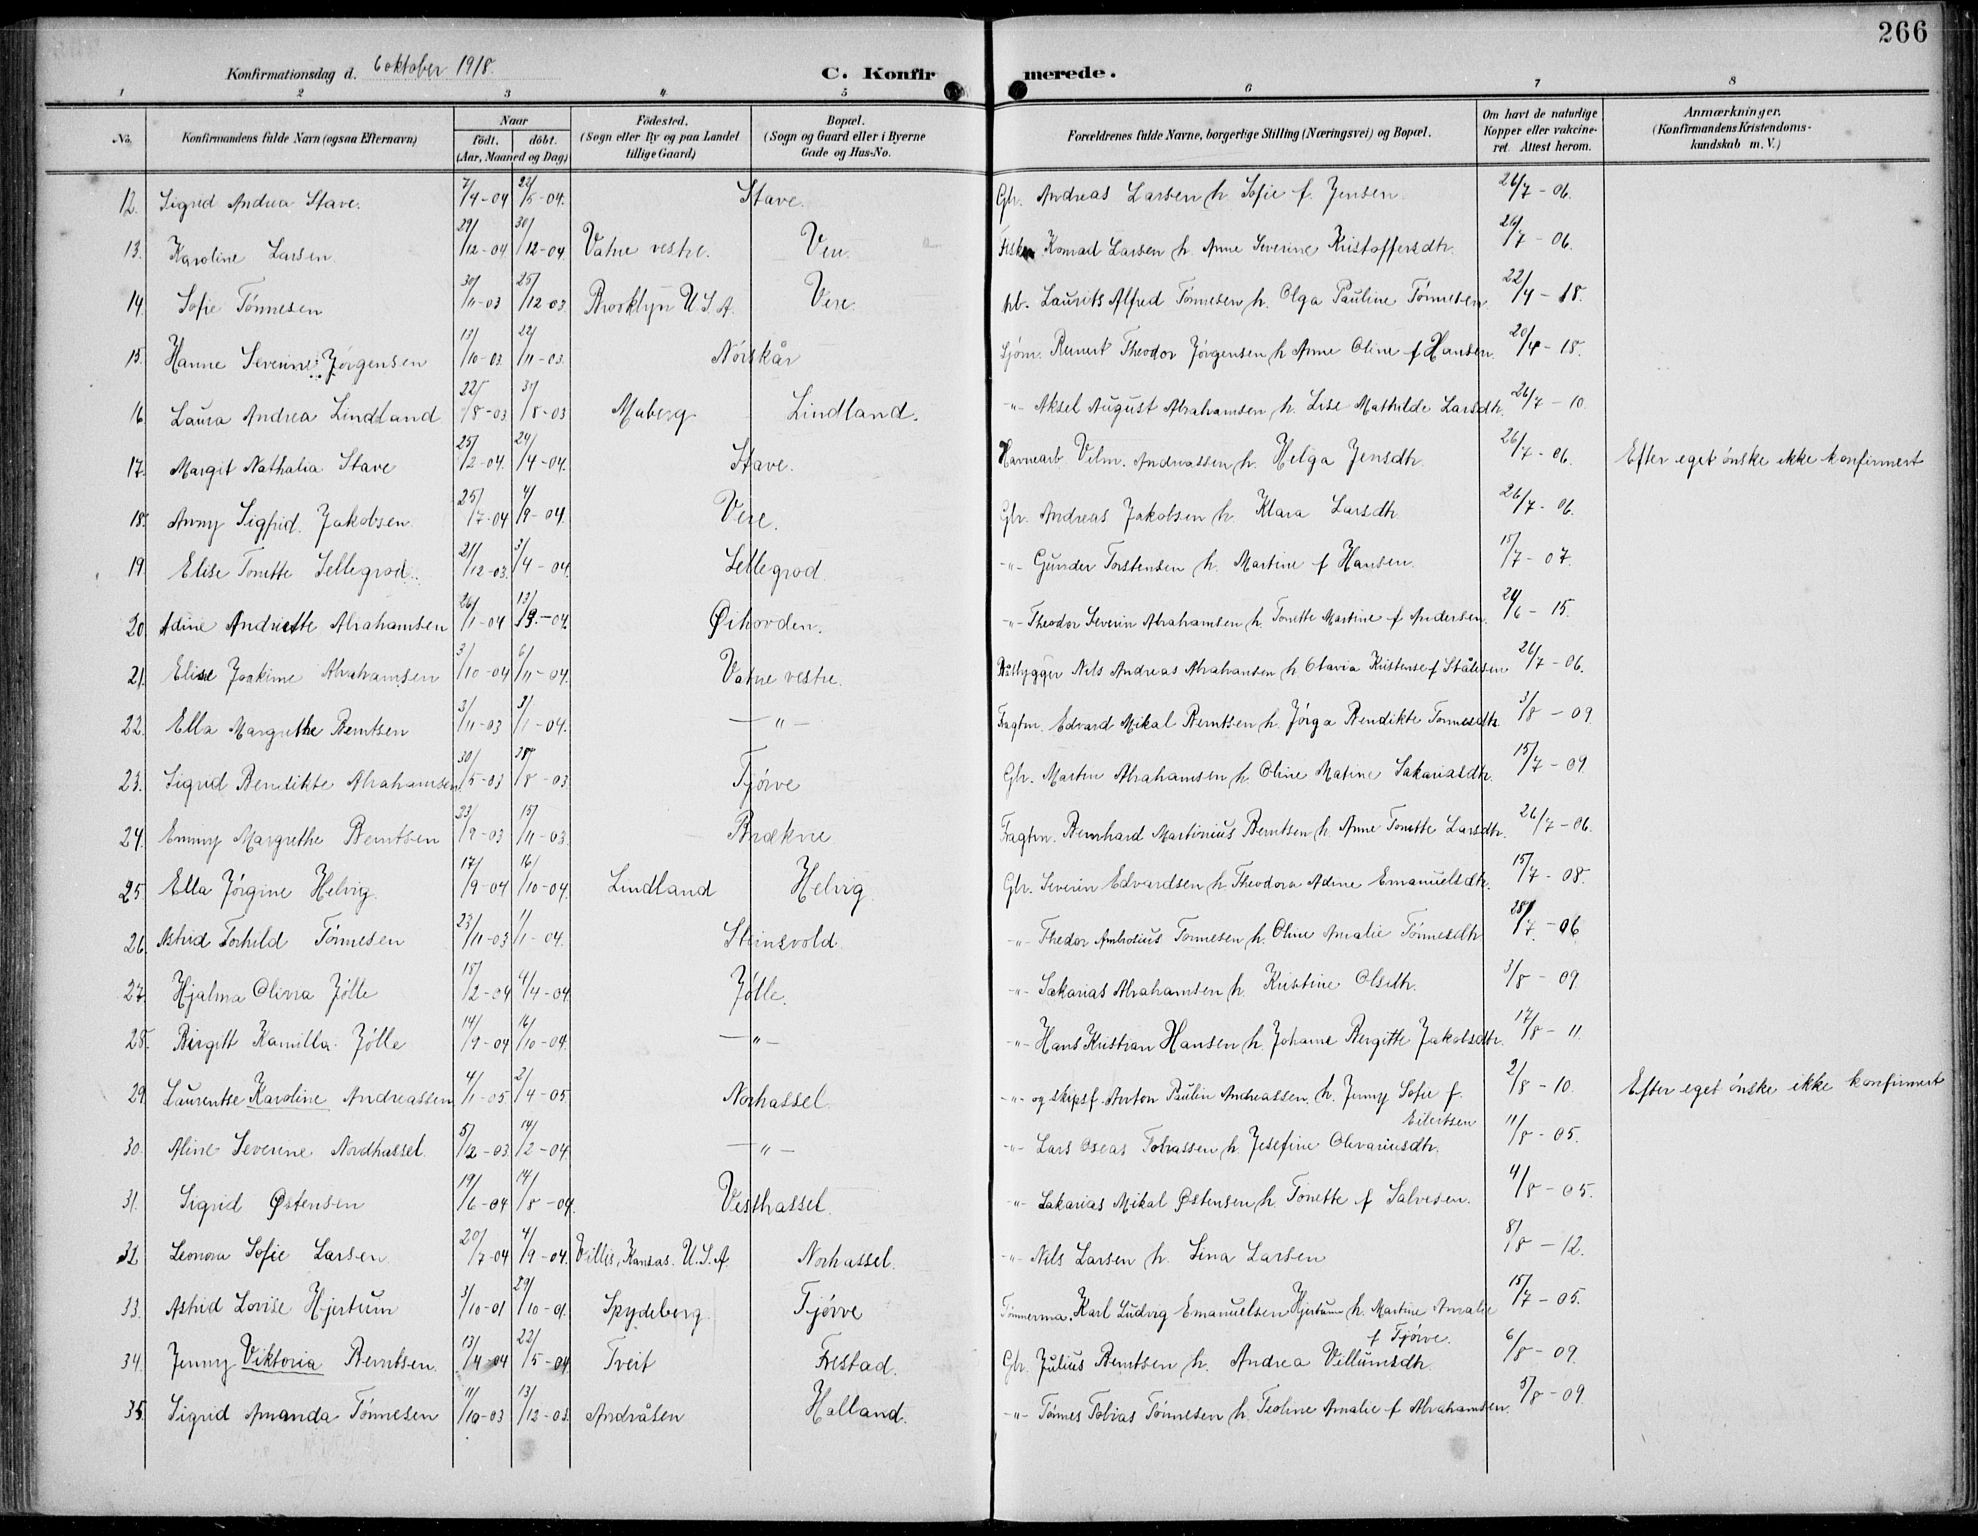 266
Konfirmationsdag d. 6 oktober 1918.
C. Konfirmerede.
1 2 3 4 5 6 7 8
No. Konfirmandens fulde Navn (ogsaa Efternavn) Naar født. døbt. (Aar, Maaned og Dag) Fødested. (Sogn eller By og paa Landet tillige Gaard) Bopæl. (Sogn og Gaard eller i Byerne Gade og Hus-No. Forældrenes fulde Navne, borgerlige Stilling (Næringsvei) og Bopæl. Om havt de naturlige Kopper eller vakcineret. Attest herom. Anmærkninger. (Konfirmandens Kristendomskundskab m. V.)
12. Sigrid Andrea Stave. 7/4-04 22/5-04. Stave. Gbr. Andreas Larsen h. Sofie f. Jensen 26/7-06.
13. Karoline Larsen 29/12-04 30/12-04 Vatne vestre. Vere. Fisker Konrad Larsen h. Anne Severine Kristoffersdtr. 26/7-06.
14. Sofie Tönnesen 30/11-03 25/12-03 Brooklyn U.S.A. Vere. Laurits Alfred Tönnesen h. Olga Pauline Tönnesen 22/4-18.
15. Hanne Severine Jörgensen 13/10-03 22/11-03. Nörskår Sjöm. Reinert Theodor Jörgensen h. Anne Oline f Hansen. 20/4-18.
16 Laura Andrea Lindland 22/8-03 31/8-03 Maberg Lindland. -"- Aksel August Abrahamsen h. Lise Mathilde Larsdtr. 26/7-10.
17. Margit Nathalia Stave 25/2-04. 24/4-04. Stave. Havnearb. Vilm. Andreassen h. Helga Jensdtr. 26/7-06. Efter eget ønske ikke konfirmert
18. Anny Sigfrid Jakobsen 25/7-04 4/9-04. Vere. Gbr. Andreas Jakobsen h. Klara Larsdtr. 26/7-06.
19. Elise Tonette Sellegrod. 21/12-03. 3/4-04. Sellegrod -"- Gunder Torstensen h. Martine f Hansen. 15/7-07.
20. Adine Andriette Abrahamsen 26/1-04 13/3-04. Øihovden. -"- Theodor Severin Abrahamsen h. Tonette Martine f Andersen. 24/6-15.
21. Elise Joakime Abrahamsen 3/10-04 6/11-04. Vatne vestre. Båtbygger Nils Andreas Abrahamsen h. Otavia Kristense f Ståhlesen 26/7-06.
22. Ella Margrethe Berntsen 3/11-03 3/1-04. -"- Fragtm. Edvard Mikal Berntsen h. Jörga Bendikte Tönnesdtr. 3/8-09
23. Sigrid Bendikte Abrahamsen 30/5-03 /8-03 Tjörve Gbr. Morten Abrahamsen h. Oline Matine Sakariasdtr. 15/7-09
24. Emmy Margrethe Berntsen 23/9-03 15/11-03. Brækne Fragtm. Bernhard Martinius Berntsen h. Anne Tonette Larsdtr. 26/7-06.
25. Ella Jörgine Helvig 17/9-04 16/10-04. Lindland Helvig Gbr. Severin Edvardsen h. Theodora Adine Emanuelsdtr. 15/7-08.
26. Astrid Torhild Tönnesen 23/11-03 1/1-04. Steinsvold -"- Thedor Ambrosius Tönnesen h. Oline Amalie Tönnesdtr 28/7-06
27. Hjalma Olivia Jölle 18/2-04 4/4-04. Jölle. -"- Sakarias Abrahamsen h. Kristine Olsdtr. 3/8-09
28. Birgitt Kamilla Jölle 14/9-04 16/10-04. -"- -"- Hans Kristian Hansen h. Johanne Bergitte Jakobsdtr. 17/8-11.
29. Laurentse Karoline Andreassen 4/1-05 2/4-05 Norhassel. -"- og skipsf. Anton Paulin Andreassen. h. Jenny Sofie f. Eilertsen 2/8-10. Efter eget ønske ikke konfirmert
30. Aline Severine Nordhassel. 5/12-03 14/2-04. -"- -"- Lars Oseas Tobiassen h. Josefine Olivariusdtr. 11/8-05.
31. Sigrid Østensen 19/6-04 14/8-04. Vesthassel. -"- Sakarias Mikal Østensen h. Tonette f Salvesen. 4/8-05.
32. Leonora Sofie Larsen 20/7-04 4/9-04. Villis, Kansas. U.S.A Norhassel. -"- Nils Larsen h. Lina Larsen 8/8-12.
33. Astrid Lovise Hjertum 3/10-01 29/10-01. Spydeberg. Tjörve Tømmerma. Karl Ludvig Emanuelsen Hjertum h. Martine Amalie f Tjörve. 15/7-05.
34. Jenny Viktoria Berntsen. 13/4-04 22/5-04 Tveit Frestad. Gbr. Julius Berntsen h. Andrea Villumsdtr. 6/8-09.
35. Sigrid Amanda Tönnesen 11/10-03 13/12-03. Andråsen Halland. -"- Tönnes Tobias Tönnesen h. Teoline Amalie f Abrahamsen. 5/8-09.